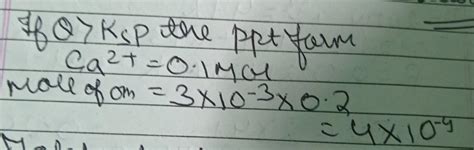 If Q > Ksp the ppt form
Ca²⁺ = 0.1 Mol
Mole of om = 3×10⁻³×0.2
= 4×10⁻⁴